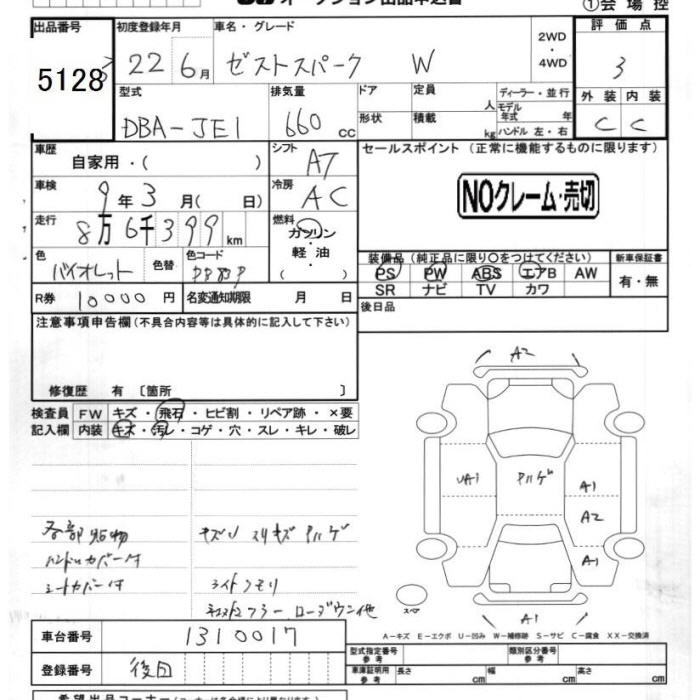 ①会場控
出品番号 初度登録年月 車名・グレード 2WD ・ 4WD 評価点
5128 22年6月 ゼストスパーク W 3
型式 排気量 ドア 定員 人 ディーラー・並行 外装 内装
DBA-JE1 660cc 形状 積載 kg モデル年式 年 ハンドル 左・右 C C
車歴 自家用・( ) シフト AT セールスポイント (正常に機能するものに限ります)
車検 9年3月( 日) 冷房 AC NOクレーム・売切
走行 8万6千399km 燃料 ガソリン 軽油
色 バイオレット 色替 色コード 装備品(純正品に限り○をつけてください) 新車保証書
PS PW ABS エアB AW 有・無
SR ナビ TV カワ
R券 10000円 名変通知期限 月 日 後日品
注意事項申告欄(不具合内容等は具体的に記入して下さい)
修復歴 有 〔箇所 〕
検査員 FW キズ・飛石・ヒビ割・リペア跡・×要
記入欄 内装 キズ・汚レ・コゲ・穴・スレ・キレ・破レ
A2
UA1 ハゲ A1
A2
A1
A1
スペア
ハンドルカバー付
シートカバー付
ライトクモリ
A-キズ E-エクボ U-凹み W-補修跡 S-サビ C-腐食 XX-交換済
車台番号 1310017 型式指定番号 参考 類別区分番号 参考
登録番号 後日 車庫証明用 参考 長さ cm 幅 cm 高さ cm